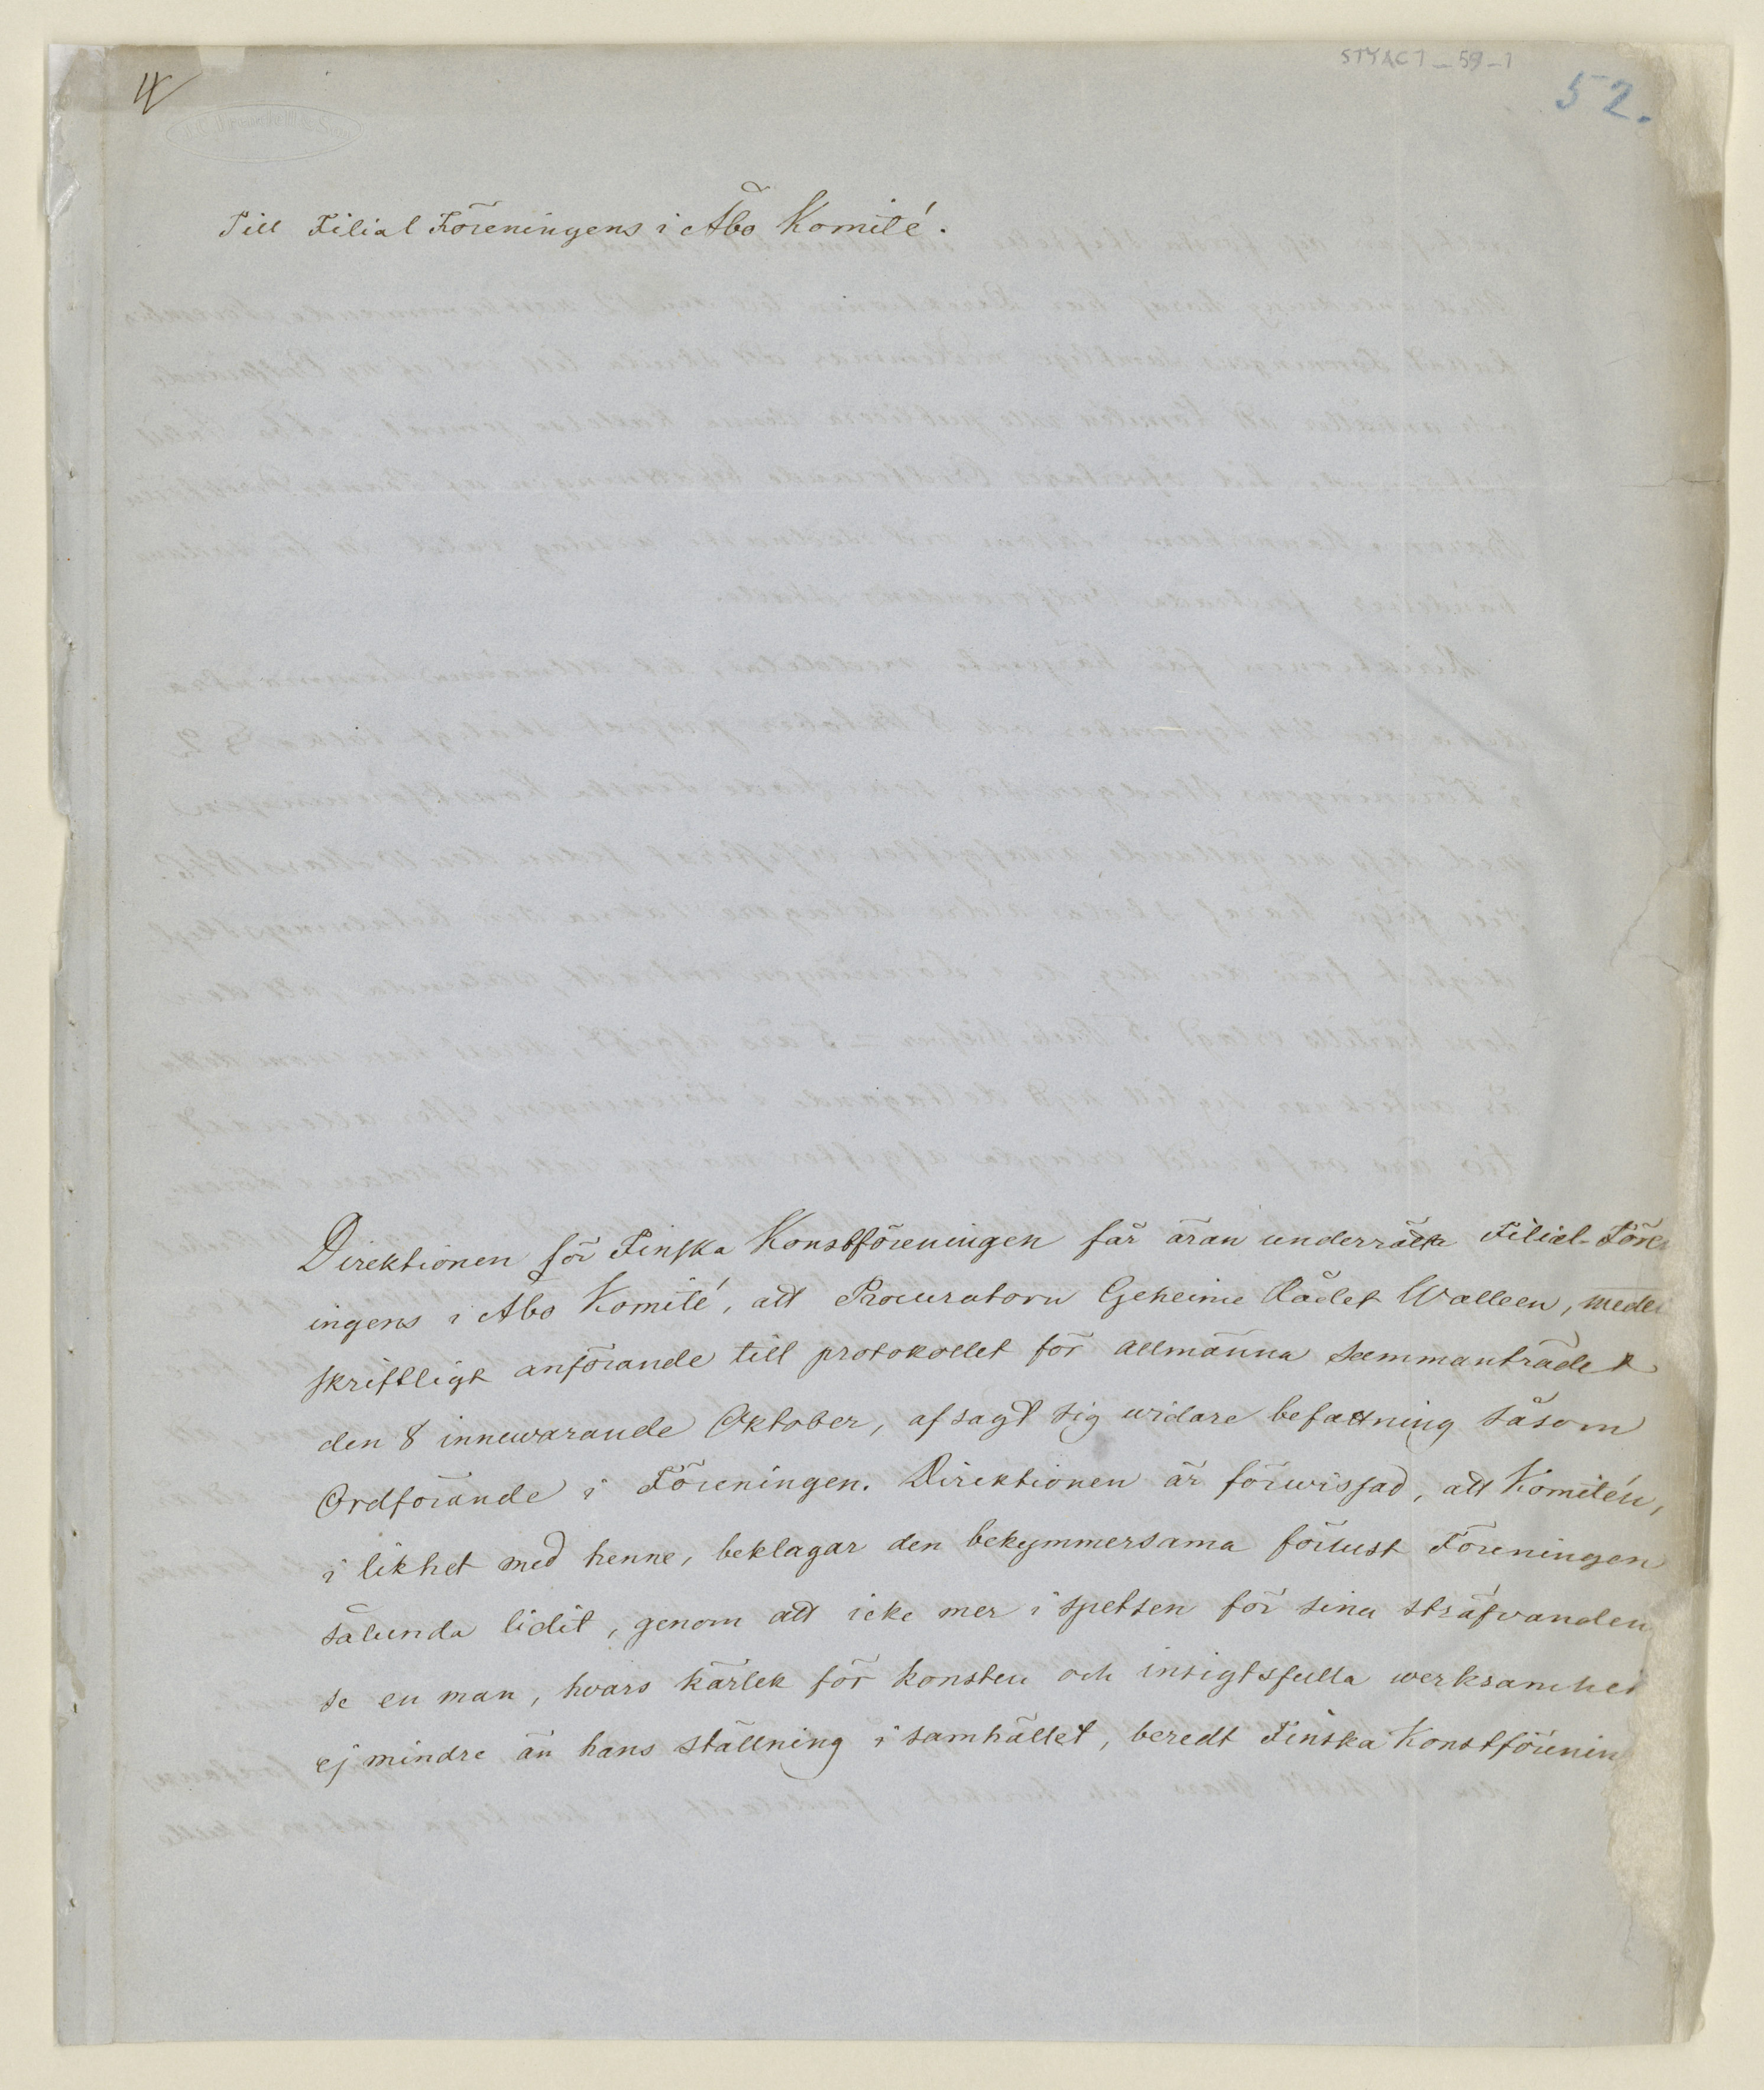 STYACT_59-1
52.
Till Filial Föreningens i Åbo Komité.
Direktionen för Finska Konstföreningen får äran underrätta Filial-Fören
ingens i Åbo Komité, att Procuratorn Geheime Rådet Walleen, medel
skriftligt anförande till protokollet för allmänna sammanträdet
den 8 innewarande Oktober, afsagt sig widare befattning såsom
Ordförande i Föreningen. Direktionen är förwissad, att Komitén,
i likhet med henne, beklagar den bekymmersama förlust Föreningen
sålunda lidit, genom att icke mer i spetsen för sina sträfvanden
se en man, hvars kärlek för konsten och insigtsfulla werksamhet
ej mindre än hans ställning i samhället, beredt Finska Konstförenin